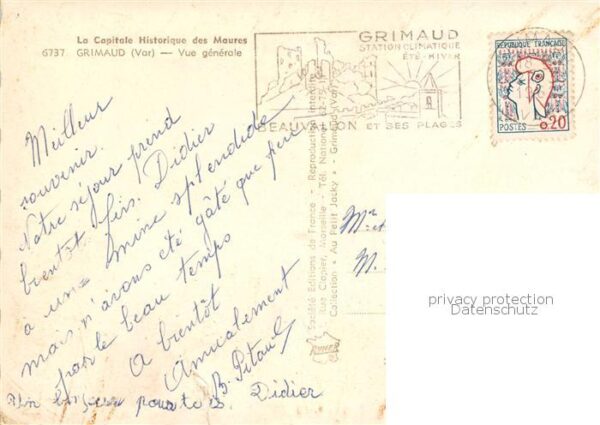 La Capitale Historique des Maures
6737. GRIMAUD (Var) — Vue générale
GRIMAUD
STATION CLIMATIQUE
ÉTÉ-HIVER
BEAUVALLON ET SES PLAGES
RÉPUBLIQUE FRANÇAISE
POSTES 0,20
Meilleur
souvenir.
Notre séjour prend
bientôt fin. Didier
a une mine splendide
mais n'avons été gâté que
par le beau temps
A bientôt
Amicalement
B.
pour Didier
Société Éditions de France - Reproduction interdite
Marseille - Tél. National
Collection « Au Petit Jacky » - Grimaud (Var)
Mr
M.
privacy protection
Datenschutz